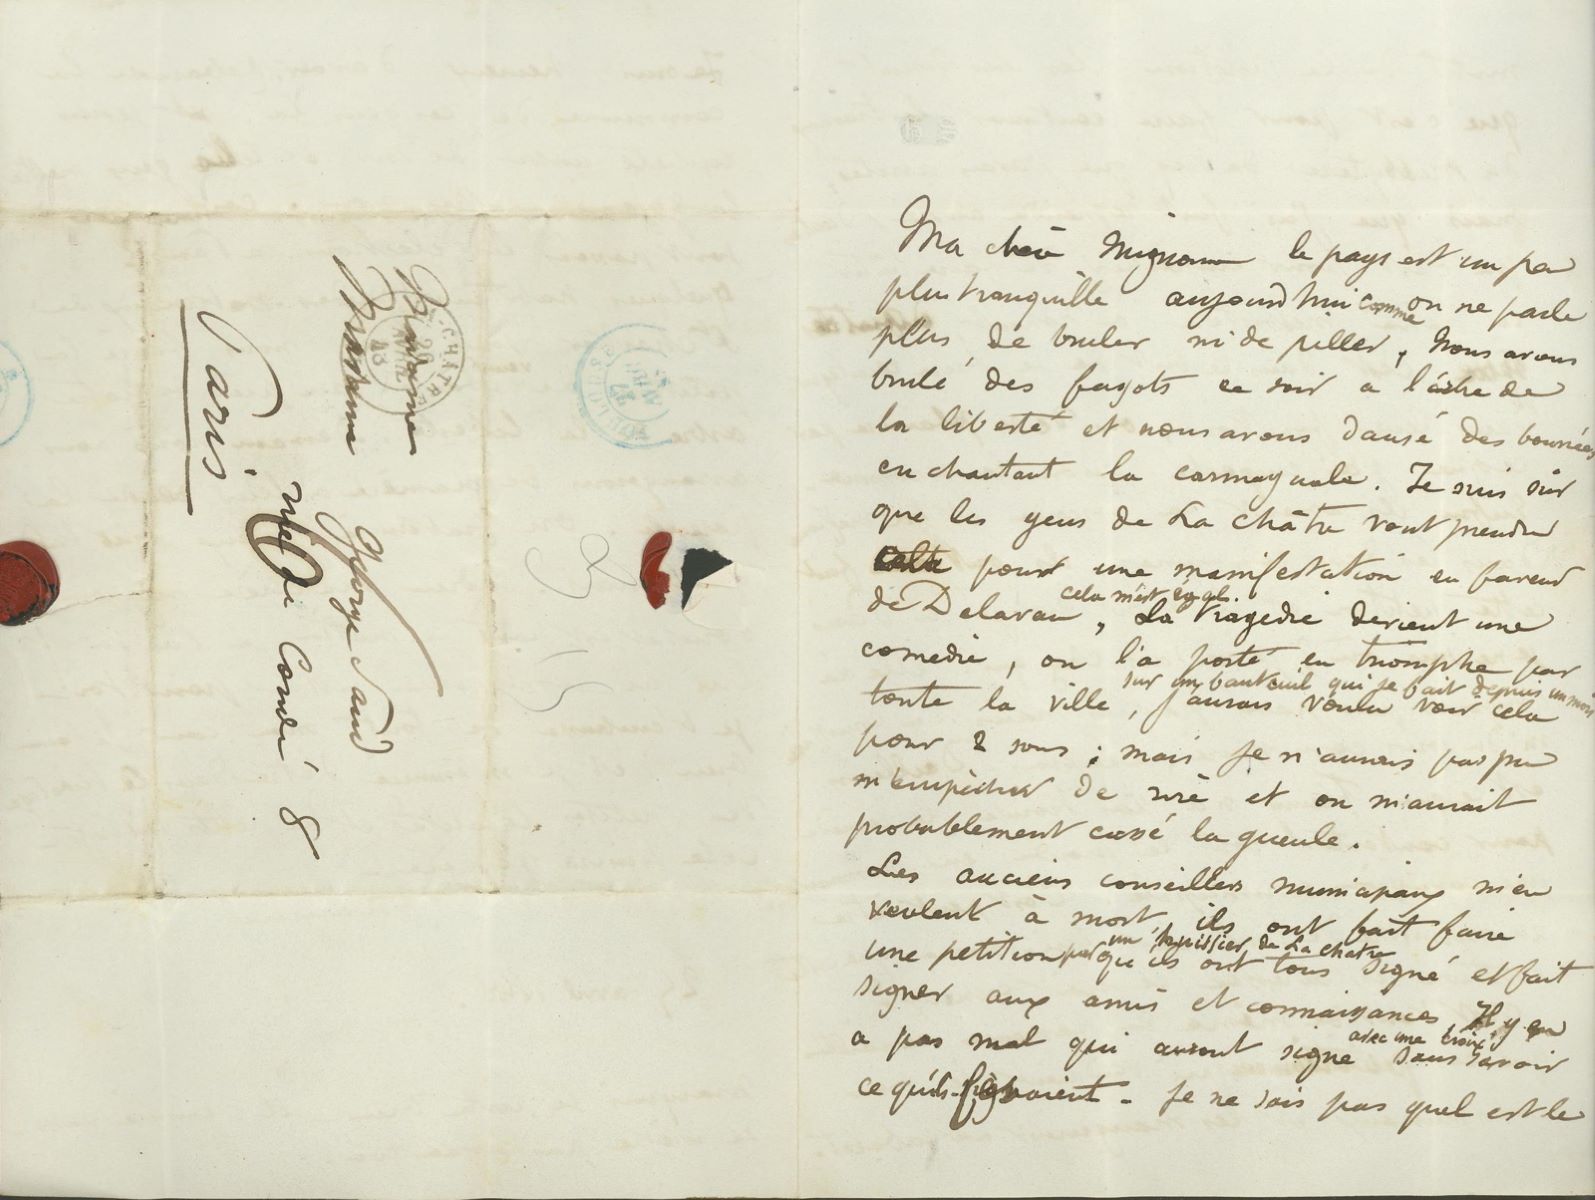 Madame
Madame George Sand
rue de Condé 8
Paris
LA CHATRE
26
AVRIL
48
Ma chère Mignonne le pays est un peu
plus tranquille aujourd'hui comme on ne parle
plus de bruler ni de piller, Nous avons
brulé des fagots ce soir a l'arbre de
la liberté et nous avons dansé des bourrées
en chantant la carmagnole. Je suis sûr
que les gens de La Châtre vont prendre
cela pour une manifestation en faveur
de Delavau, cela m'est égal. La tragedie devient une
comedie, on l'a porté en triomphe par
toute la ville, sur un fauteuil qui se fait depuis un mois
j'aurais voulu voir cela
pour 2 sous ; mais je n'aurais pas pu
m'empêcher de rire et on m'aurait
probablement cassé la gueule.
Les anciens conseillers municipaux m'en
veulent à mort, ils ont fait faire
une petition par un huissier de La chatre
qu'ils ont tous signé et fait
signer aux amis et connaissances. Il y en
a pas mal qui auront signe avec une croix sans savoir
ce qu'ils signaient - je ne sais pas quel est le